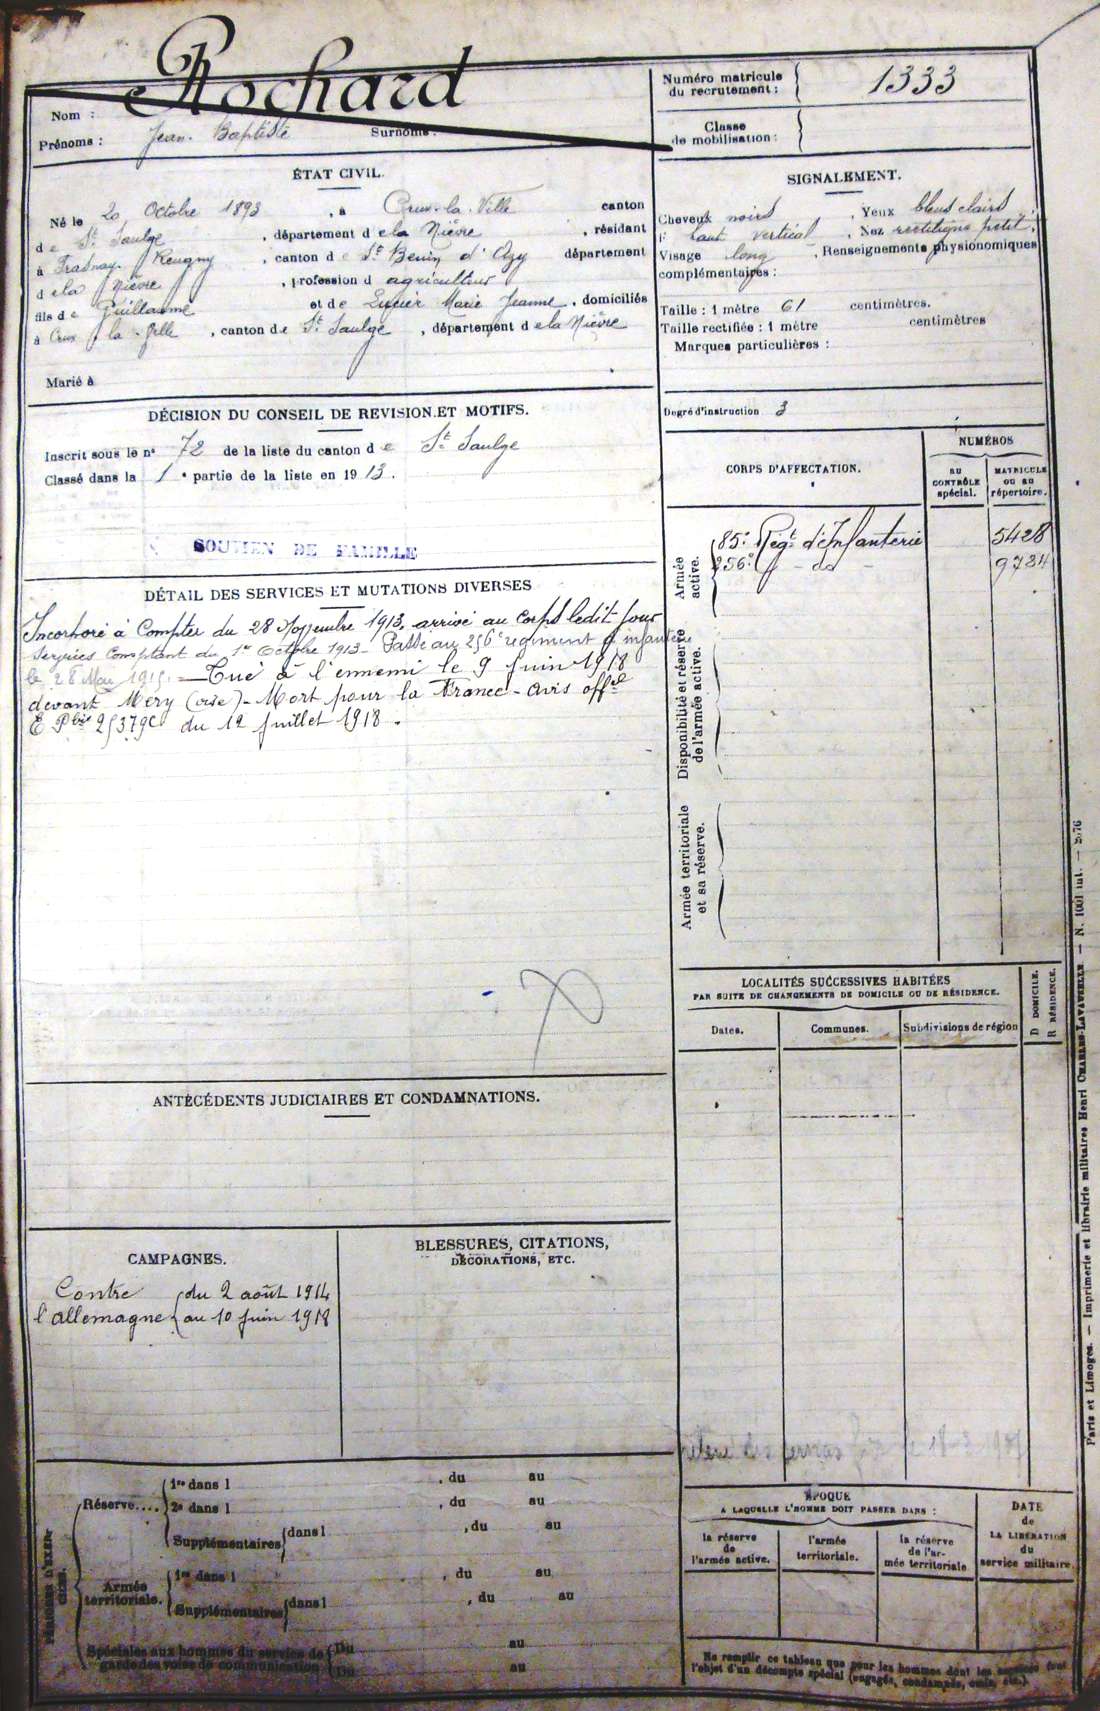 Rochard
Nom :
Prénoms : Jean-Baptiste Surnoms :
Numéro matricule du recrutement : 1333
Classe de mobilisation :
ÉTAT CIVIL.
Né le 20 Octobre 1893, à Crux-la-Ville canton
de St Saulge, département de la Nièvre, résidant
à Frasnay-Reugny, canton de St Benin d'Azy département
de la Nièvre, profession d agriculteur
fils de Guillaume et de Marie Jeanne, domiciliés
à Crux-la-Ville, canton de St Saulge, département de la Nièvre
Marié à
SIGNALEMENT.
Cheveux noirs, Yeux bleus clairs,
F haut vertical, Nez rectiligne petit;
Visage long, Renseignements physionomiques
complémentaires :
Taille : 1 mètre 61 centimètres.
Taille rectifiée : 1 mètre centimètres
Marques particulières :
Degré d'instruction 3
DÉCISION DU CONSEIL DE REVISION ET MOTIFS.
Inscrit sous le n° 72 de la liste du canton de St Saulge
Classé dans la 1e partie de la liste en 1913.
SOUTIEN DE FAMILLE
DÉTAIL DES SERVICES ET MUTATIONS DIVERSES
Incorporé à Compter du 28 Novembre 1913, arrivé au corps ledit jour
Services Comptant du 1er Octobre 1913 - Passé au 256e régiment d'infanterie
le 28 Mai 1915. — Tué à l'ennemi le 9 juin 1918
devant Méry (oise) - Mort pour la France - avis offel
du 12 juillet 1918.
CORPS D'AFFECTATION.
NUMÉROS
AU CONTRÔLE spécial.
MATRICULE ou au répertoire.
Armée active.
85e Regt d'Infanterie 5428
256e - do - 9734
Disponibilité et réserve de l'armée active.
Armée territoriale et sa réserve.
LOCALITÉS SUCCESSIVES HABITÉES
PAR SUITE DE CHANGEMENTS DE DOMICILE OU DE RÉSIDENCE.
D DOMICILE.
R RÉSIDENCE.
Dates. Communes. Subdivisions de région
ANTÉCÉDENTS JUDICIAIRES ET CONDAMNATIONS.
CAMPAGNES.
Contre l'allemagne
du 2 août 1914
au 10 juin 1918
BLESSURES, CITATIONS,
DÉCORATIONS, ETC.
PÉRIODES D'EXERCICES.
Réserve....
1re dans l , du au
2e dans l , du au
Supplémentaires dans l , du au
Armée territoriale.
1re dans l , du au
Supplémentaires dans l , du au
Spéciales aux hommes du service de garde des voies de communication
Du au
Du au
ÉPOQUE
A LAQUELLE L'HOMME DOIT PASSER DANS :
la réserve de l'armée active.
l'armée territoriale.
la réserve de l'armée territoriale
DATE de LA LIBÉRATION du service militaire.
Ne remplir ce tableau que pour les hommes dont les services font
l'objet d'un décompte spécial (engagés, condamnés, omis, etc.)
Paris et Limoges. — Imprimerie et librairie militaires Henri CHARLES-LAVAUZELLE — N. 1001 int.